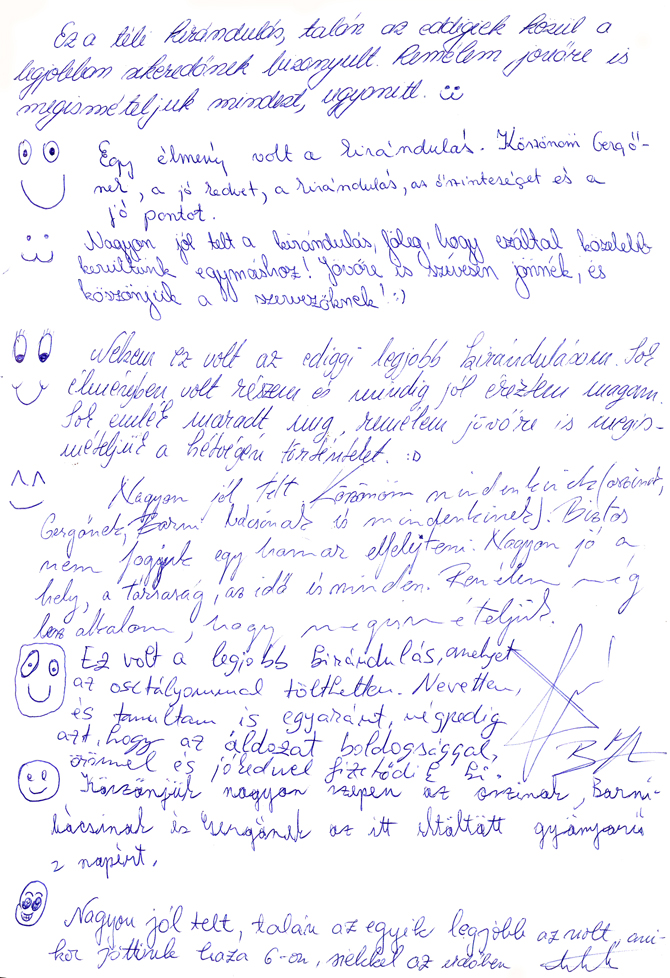 Ez a téli kirándulás, talán az eddigiek közül a
legjobban sikeredőnek bizonyult. Remélem jövőre is
megismételjük mindezt, ugyanitt.
Egy élmény volt a kirándulás. Köszönöm Gergő-
nek, a jó kedvet, a kirándulás, az őszinteséget és a
jó pontot.
Nagyon jól telt a kirándulás, főleg, hogy ezáltal közelebb
kerültünk egymáshoz! Jövőre is szívesen jönnék, és
köszönjük a szervezőknek! :)
Nekem ez volt az eddiggi legjobb kirándulásom. Sok
élményben volt részem és mindig jól éreztem magam.
Sok emlék maradt meg, remélem jövőre is megis-
mételjük a hétvégén történteket. :D
Nagyon jól telt. Köszönöm mindenkinek (oszinak,
Gergőnek, Barni bácsinak és mindenkinek). Biztos
nem fogjuk egy hamar elfelejteni. Nagyon jó a
hely, a társaság, az idő és minden. Remélem még
lesz alkalom, hogy megismételjük.
Ez volt a legjobb kirándulás, amelyet
az osztályommal tölthettem. Nevettem,
és tanultam is egyaránt, végpedig
azt, hogy az áldozat boldogsággal,
örömmel és jókedvvel fizetődik ki.
Köszönjük nagyon szépen az oszinak, Barni-
bácsinak és Gergőnek az itt eltöltött gyönyörű
2 napért.
Nagyon jól telt, talán az egyik legjobb az volt, ami-
kor jöttünk haza 6-on, sínekkel az erdőben